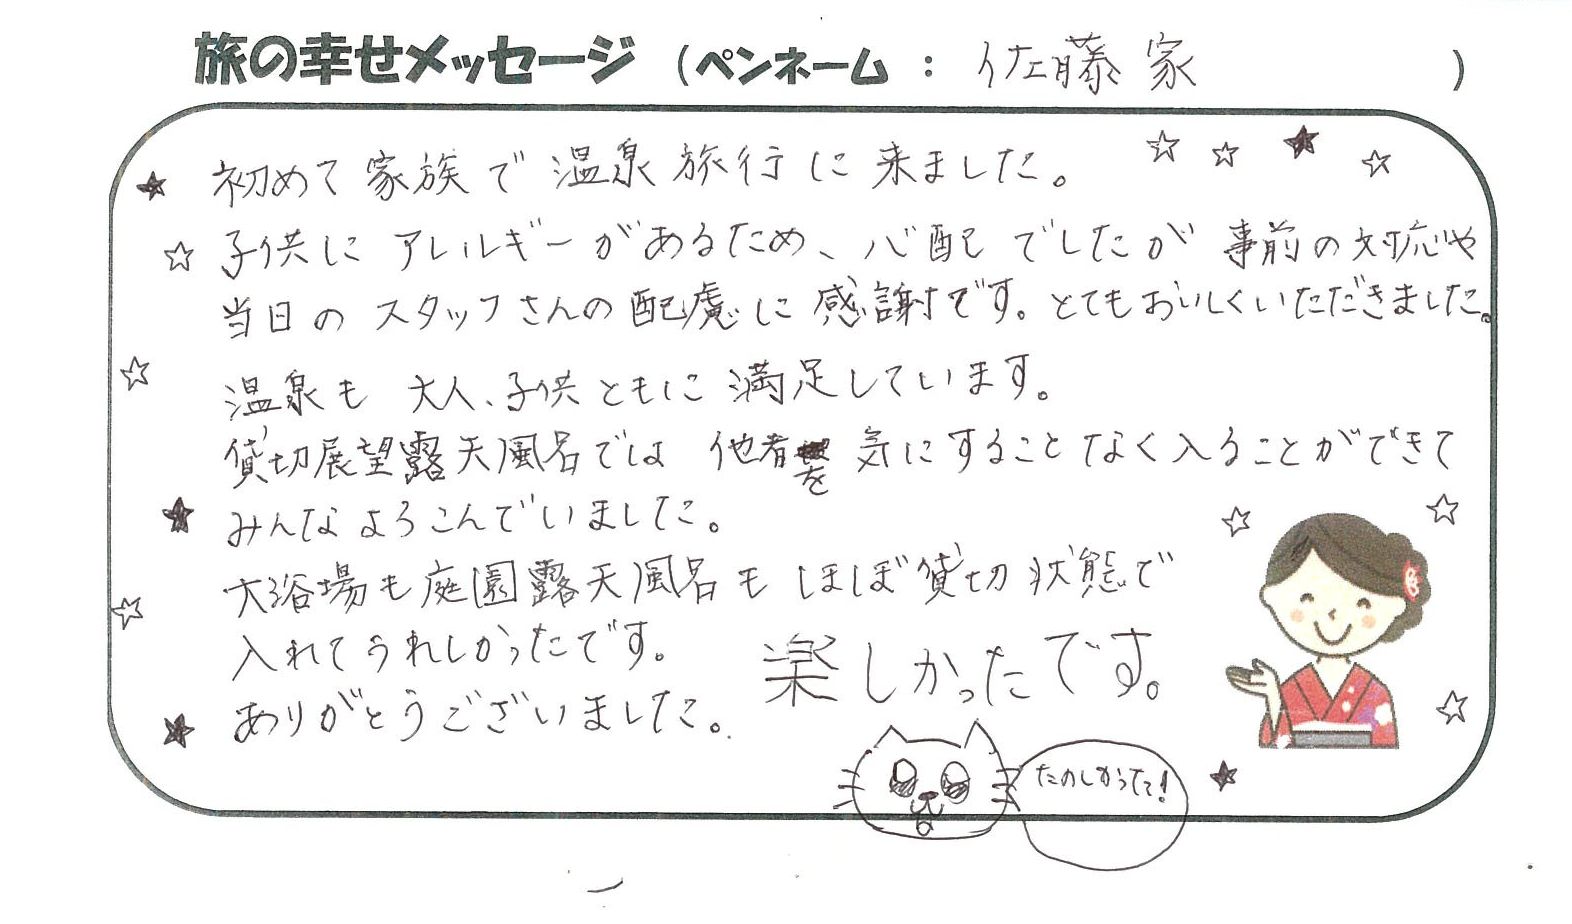 旅の幸せメッセージ（ペンネーム ： 佐藤家 ）
初めて家族で温泉旅行に来ました。
子供にアレルギーがあるため、心配でしたが事前の対応や
当日のスタッフさんの配慮に感謝です。とてもおいしくいただきました。
温泉も大人、子供ともに満足しています。
貸切展望露天風呂では他者を気にすることなく入ることができて
みんなよろこんでいました。
大浴場も庭園露天風呂もほぼ貸切状態で
入れてうれしかったです。
楽しかったです。
ありがとうございました。
たのしかった!